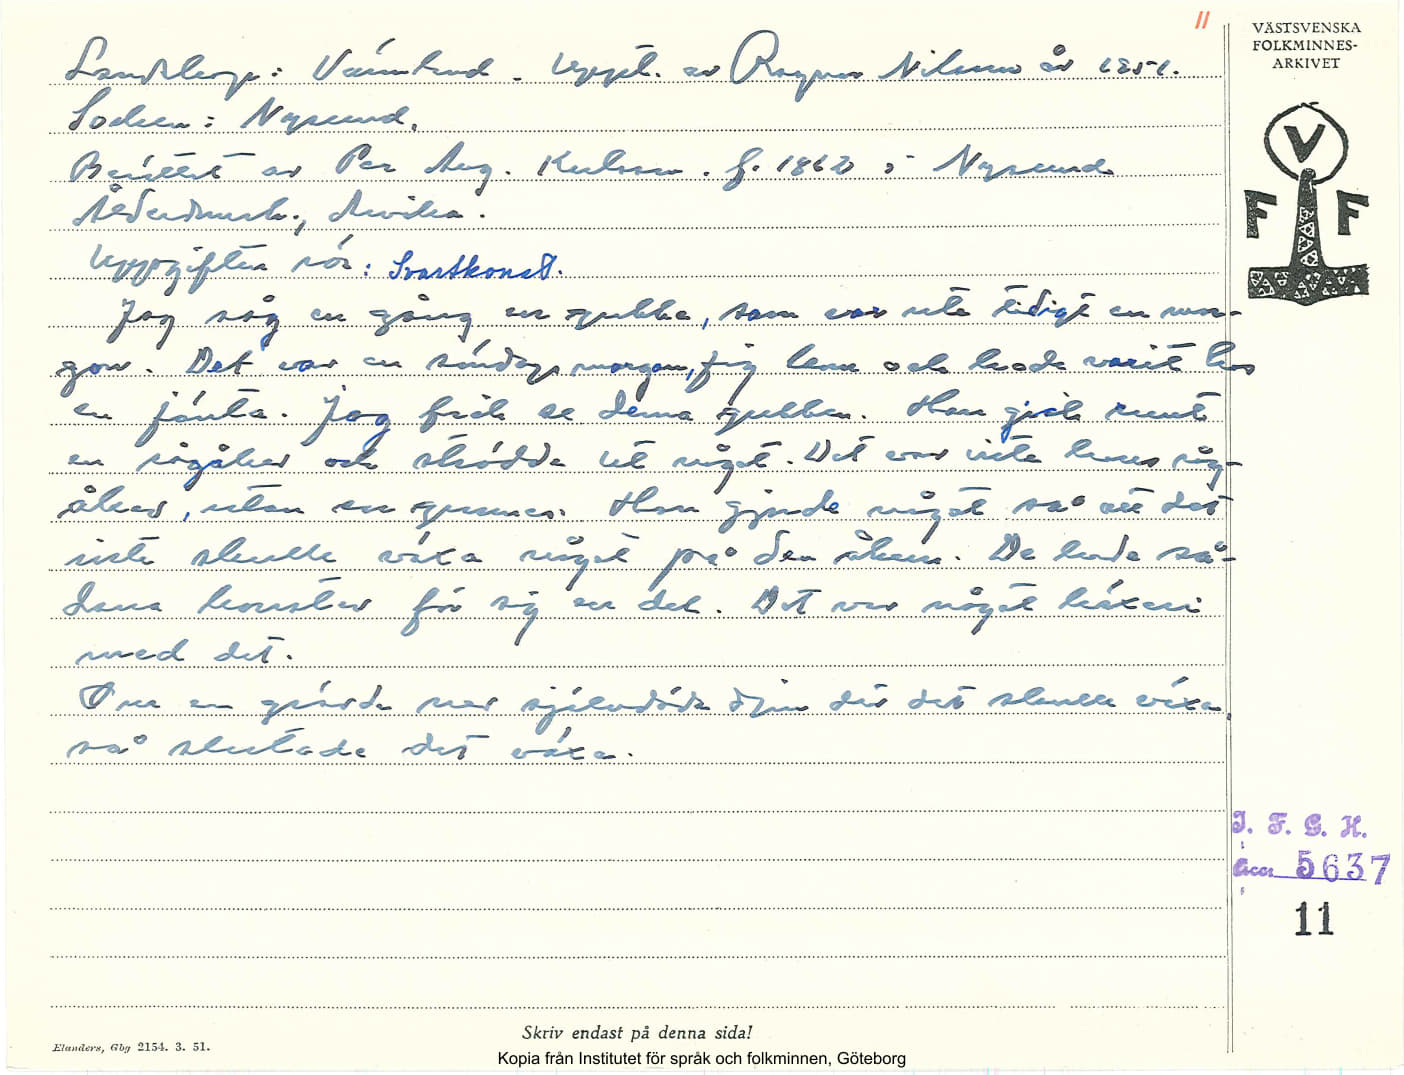 11
VÄSTSVENSKA
FOLKMINNES-
ARKIVET
V
F F
Landskap: Värmland. Uppt. av Ragnar Nilsson år 1951.
Socken: Nysund.
Berättat av Per Aug. Karlsson. f. 1862 i Nysund
Ålderdomsh., Arvika.
Uppgiften rör: Svartkonst.
Jag såg en gång en gubbe, som var ute tidigt en mor-
gon. Det var en söndagsmorgon, jag kom och hade varit hos
en jänta. Jag fick se denna gubben. Han gick runt
en rågåker och strödde ut något. Det var inte hans råg-
åker, utan en grannes. Han gjorde något så att det
inte skulle växa något på den åkern. De hade så-
dana konster för sig en del. Det var något häxeri
med det.
Om en grävde ner självdöda djur där det skulle växa,
så slutade det växa.
I. F. G. H.
Acc. 5637
11
Skriv endast på denna sida!
Elanders, Gbg 2154. 3. 51.
Kopia från Institutet för språk och folkminnen, Göteborg